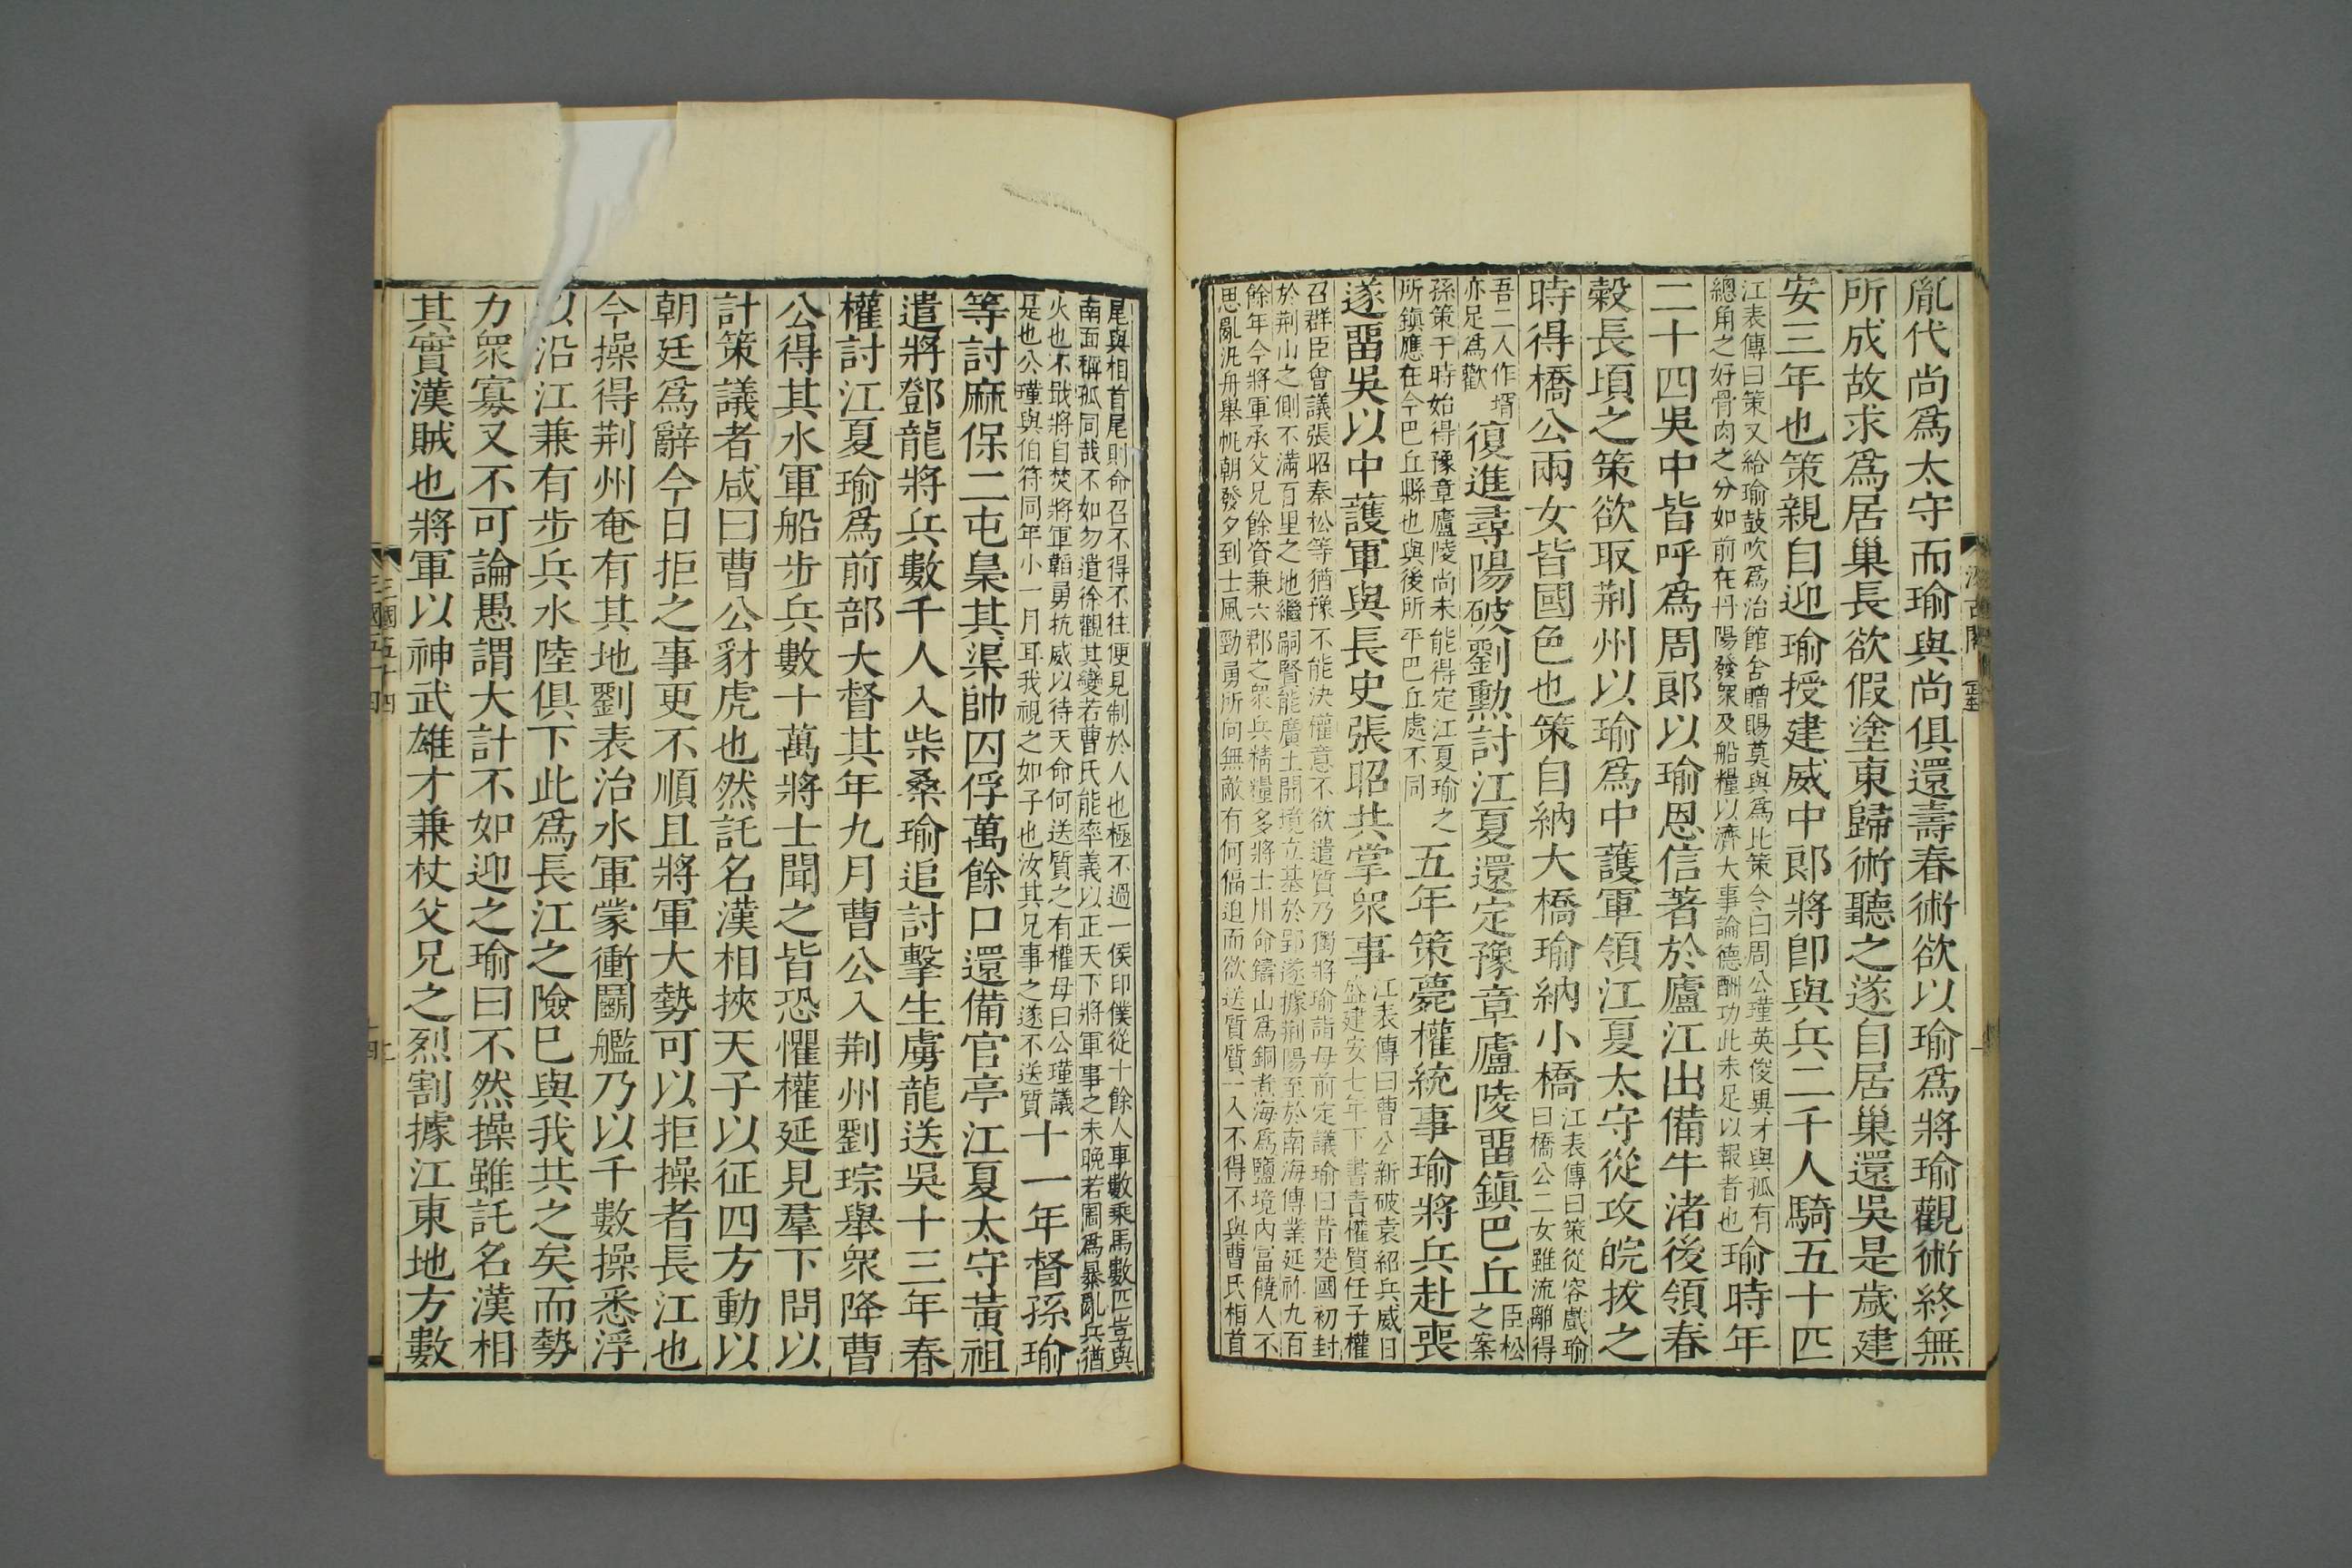 胤代尚爲太守而瑜與尚俱還壽春術欲以瑜爲將瑜觀術終無
所成故求爲居巢長欲假塗東歸術聽之遂自居巢還吳是歲建
安三年也策親自迎瑜授建威中郎將卽與兵二千人騎五十匹
江表傳曰策又給瑜鼓吹爲治館舍贈賜莫與爲比策令曰周公瑾英俊異才與孤有
總角之好骨肉之分如前在丹陽發衆及船糧以濟大事論德酬功此未足以報者也
瑜時年
二十四吳中皆呼爲周郎以瑜恩信著於廬江出備牛渚後領春
穀長頃之策欲取荆州以瑜爲中護軍領江夏太守從攻皖拔之
時得橋公兩女皆國色也策自納大橋瑜納小橋
江表傳曰策從容戲瑜
曰橋公二女雖流離得
吾二人作壻
亦足爲歡
復進尋陽破劉勳討江夏還定豫章廬陵畱鎭巴丘
臣松
之案
孫策于時始得豫章廬陵尚未能得定江夏瑜之
所鎭應在今巴丘縣也與後所平巴丘處不同
五年策薨權統事瑜將兵赴喪
遂畱吳以中護軍與長史張昭共掌衆事
江表傳曰曹公新破袁紹兵威日
盛建安七年下書責權質任子權
召群臣會議張昭秦松等猶豫不能決權意不欲遣質乃獨將瑜詣母前定議瑜曰昔楚國初封
於荆山之側不滿百里之地繼嗣賢能廣土開境立基於郢遂據荆陽至於南海傳業延祚九百
餘年今將軍承父兄餘資兼六郡之衆兵精糧多將士用命鑄山爲銅煮海爲鹽境內富饒人不
思亂汎舟舉帆朝發夕到士風勁勇所向無敵有何偪迫而欲送質質一入不得不與曹氏相首
尾與相首尾則命召不得不往便見制於人也極不過一侯印僕從十餘人車數乘馬數匹豈與
南面稱孤同哉不如勿遣徐觀其變若曹氏能率義以正天下將軍事之未晩若圖爲暴亂兵猶
火也不戢將自焚將軍韜勇抗威以待天命何送質之有權母曰公瑾議
是也公瑾與伯符同年小一月耳我視之如子也汝其兄事之遂不送質
十一年督孫瑜
等討麻保二屯梟其渠帥囚俘萬餘口還備官亭江夏太守黃祖
遣將鄧龍將兵數千人入柴桑瑜追討擊生虜龍送吳十三年春
權討江夏瑜爲前部大督其年九月曹公入荆州劉琮舉衆降曹
公得其水軍船步兵數十萬將士聞之皆恐懼權延見羣下問以
計策議者咸曰曹公豺虎也然託名漢相挾天子以征四方動以
朝廷爲辭今日拒之事更不順且將軍大勢可以拒操者長江也
今操得荆州奄有其地劉表治水軍蒙衝鬭艦乃以千數操悉浮
以沿江兼有步兵水陸俱下此爲長江之險已與我共之矣而勢
力衆寡又不可論愚謂大計不如迎之瑜曰不然操雖託名漢相
其實漢賊也將軍以神武雄才兼杖父兄之烈割據江東地方數
三國五十四